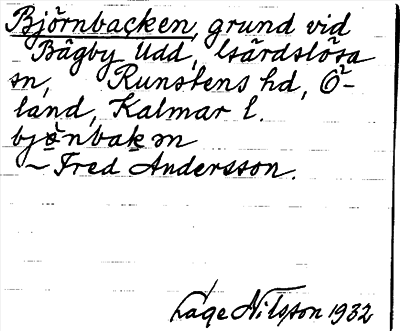 Björnbacken, grund vid
Bägby Udd, Gärdslösa
sn, Runstens hd, Ö-
land, Kalmar l.
~ Fred Andersson.
Lage Nilsson 1932